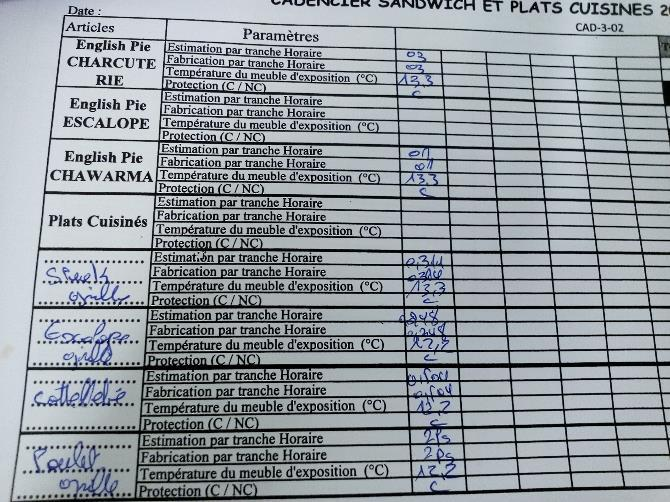 CADENCIER SANDWICH ET PLATS CUISINES
Date :
CAD-3-02
Articles Paramètres
English Pie CHARCUTE RIE
Estimation par tranche Horaire 03
Fabrication par tranche Horaire 03
Température du meuble d'exposition (°C) 13,3
Protection (C / NC) C
English Pie ESCALOPE
Estimation par tranche Horaire
Fabrication par tranche Horaire
Température du meuble d'exposition (°C)
Protection (C / NC)
English Pie CHAWARMA
Estimation par tranche Horaire 011
Fabrication par tranche Horaire 011
Température du meuble d'exposition (°C) 13,3
Protection (C / NC) C
Plats Cuisinés
Estimation par tranche Horaire
Fabrication par tranche Horaire
Température du meuble d'exposition (°C)
Protection (C / NC)
Estimation par tranche Horaire
Fabrication par tranche Horaire
Température du meuble d'exposition (°C) 12,3
Protection (C / NC) C
Escalope
Estimation par tranche Horaire
Fabrication par tranche Horaire
Température du meuble d'exposition (°C)
Protection (C / NC) C
Estimation par tranche Horaire
Fabrication par tranche Horaire
Température du meuble d'exposition (°C)
Protection (C / NC) C
Poulet
Estimation par tranche Horaire 2Ps
Fabrication par tranche Horaire 2Ps
Température du meuble d'exposition (°C) 12,2
Protection (C / NC) C